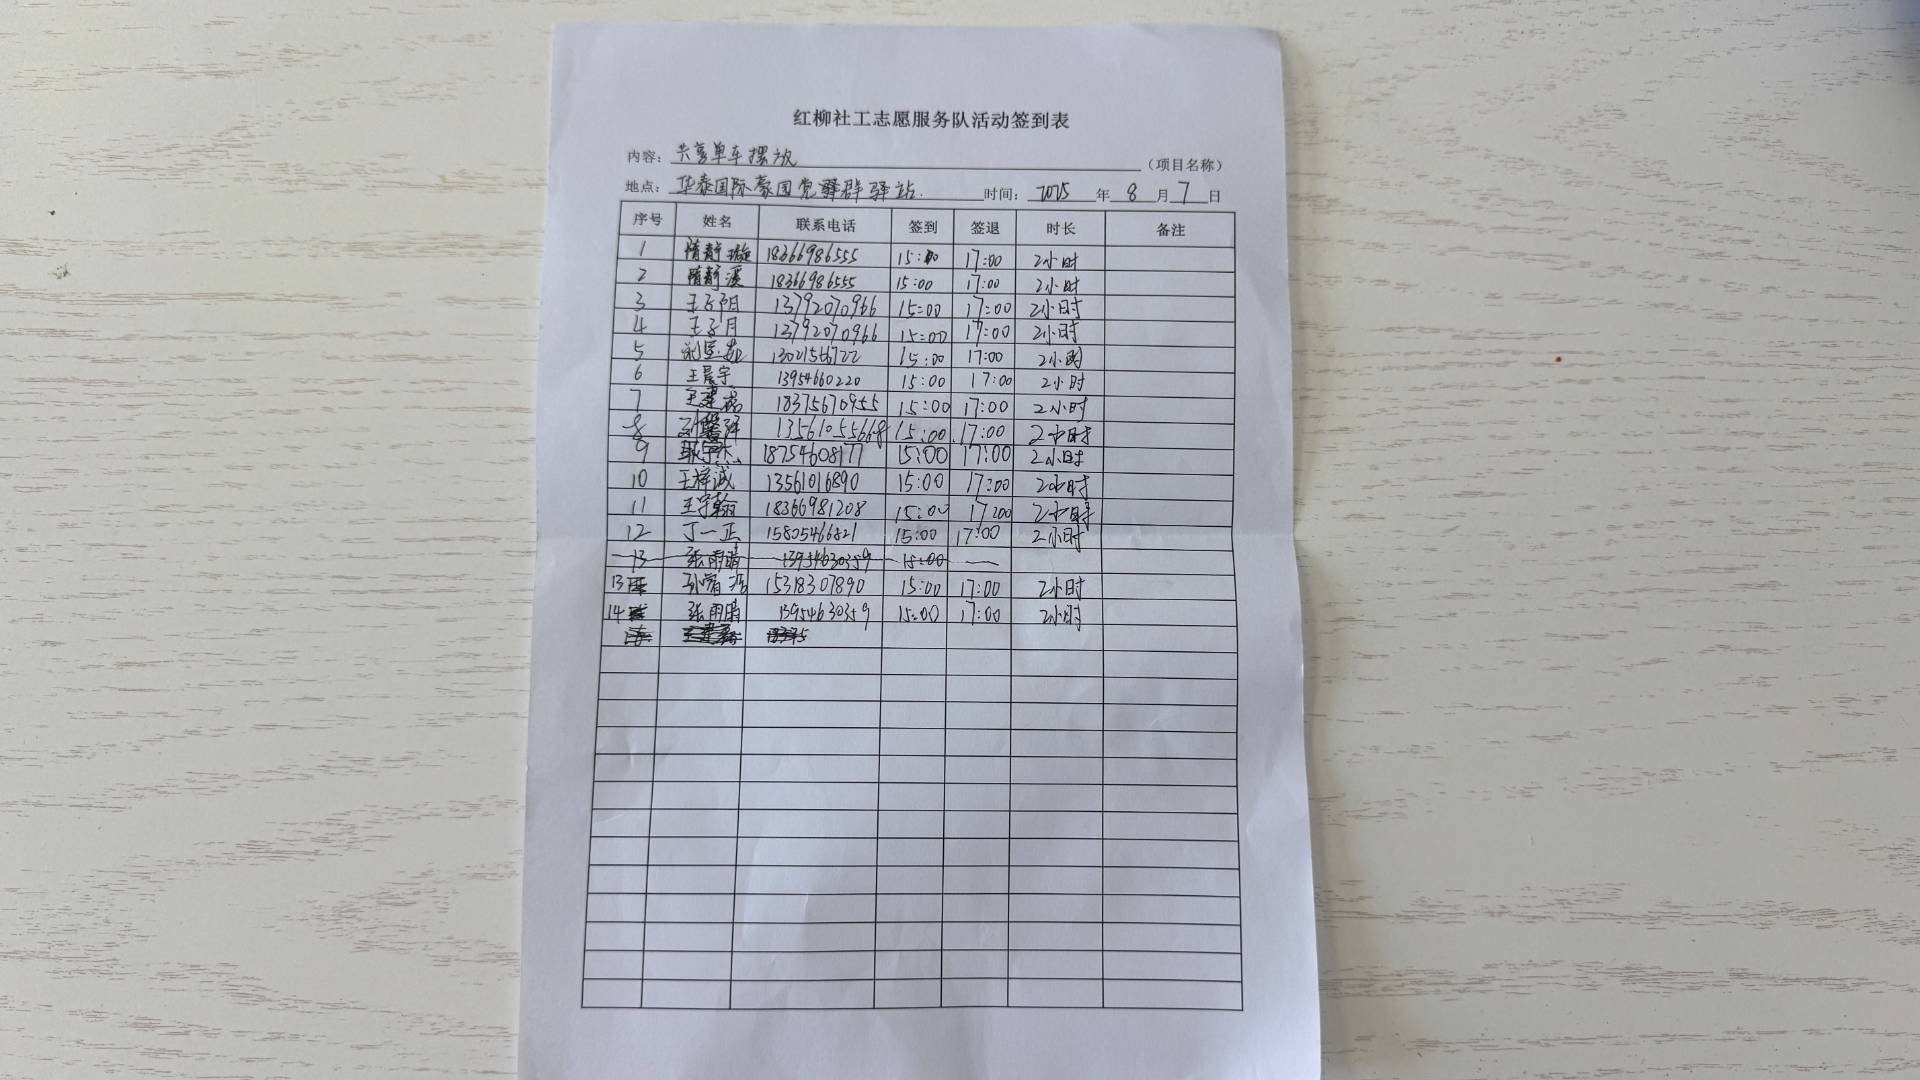 红柳社工志愿服务队活动签到表
内容：共享单车摆放（项目名称）
地点：华泰国际豪园党群驿站. 时间：2025年8月7日
序号 姓名 联系电话 签到 签退 时长 备注
1 隋静璇 18366986555 15:00 17:00 2小时
2 隋静溪 18366986555 15:00 17:00 2小时
3 王子阳 13792070966 15:00 17:00 2小时
4 王子月 13792070966 15:00 17:00 2小时
5 15:00 17:00 2小时
6 王晨宇 13954660220 15:00 17:00 2小时
7 王建 18375670955 15:00 17:00 2小时
8 13561055668 15:00 17:00 2小时
9 18754608177 15:00 17:00 2小时
10 王梓诚 13561016890 15:00 17:00 2小时
11 王宇翰 18366981208 15:00 17:00 2小时
12 丁一正 15805466821 15:00 17:00 2小时
13 张雨晴 13954630359 15:00
13 15318307890 15:00 17:00 2小时
14 张雨晴 13954630359 15:00 17:00 2小时